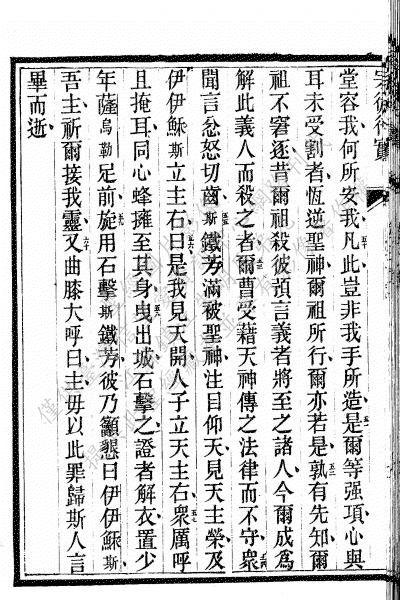 宗徒行實
堂容我何所安我凡此豈非我手所造是爾等强項心與
耳未受割者恆逆聖神爾祖所行爾亦若是孰有先知爾
祖不窘逐昔爾祖殺彼預言義者將至之諸人今爾成為
解此義人而殺之者爾曹受藉天神傳之法律而不守衆
聞言忿怒切齒斯鐵芳滿被聖神注目仰天見天主榮及
伊伊穌斯立主右曰是我見天開人子立天主右衆厲呼
且掩耳同心蜂擁至其身曳出城石擊之證者解衣置少
年薩烏勒足前旋用石擊斯鐵芳彼乃籲懇曰伊伊穌斯
吾主祈爾接我靈又曲膝大呼曰主毋以此罪歸斯人言
畢而逝